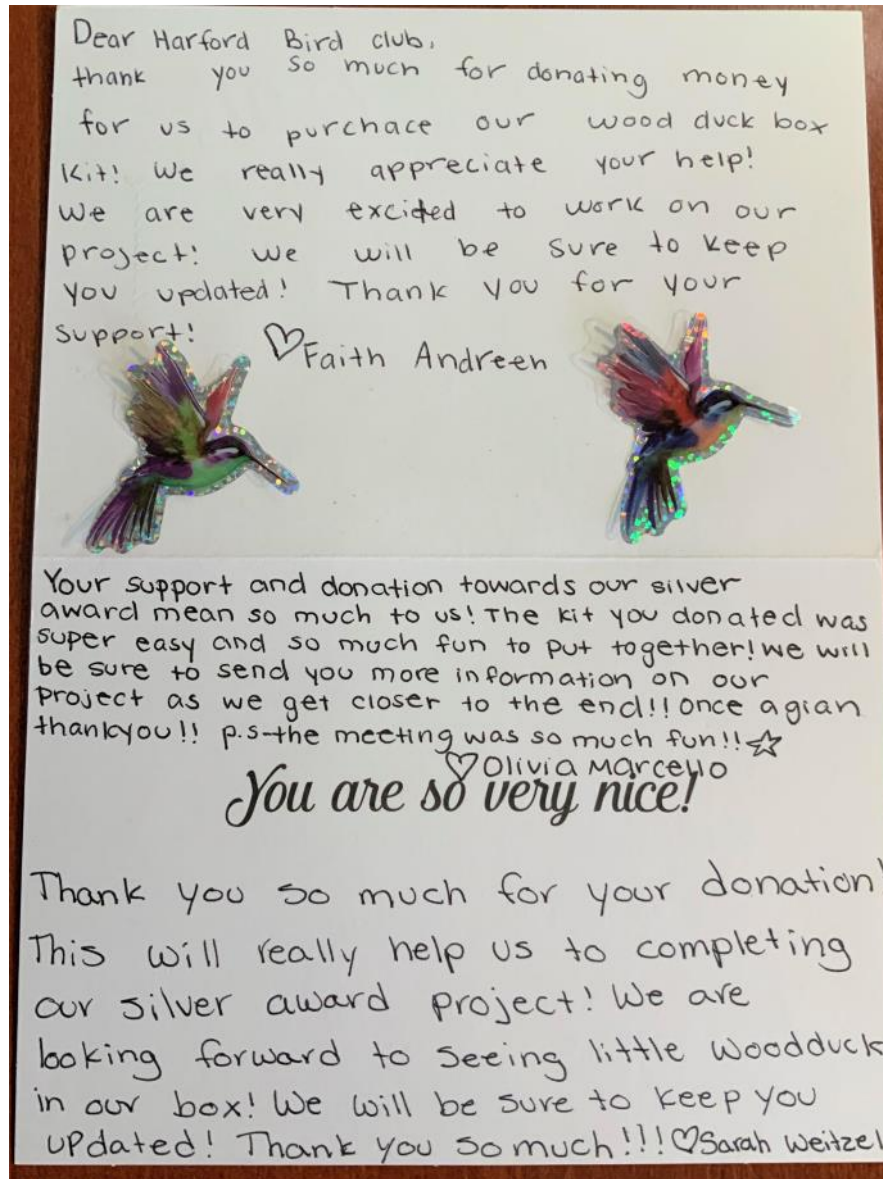 Dear Harford Bird club,
thank you so much for donating money
for us to purchace our wood duck box
Kit! We really appreciate your help!
We are very excided to work on our
project! we will be sure to keep
you updated! Thank you for your
support! ♡Faith Andreen
Your support and donation towards our silver
award mean so much to us! The kit you donated was
super easy and so much fun to put together! we will
be sure to send you more information on our
project as we get closer to the end!! Once agian
thankyou!! p.s-the meeting was so much fun!! ☆
♡Olivia Marcello
You are so very nice!
Thank you so much for your donation!
This will really help us to completing
our silver award project! We are
looking forward to seeing little woodduck
in our box! We will be sure to keep you
updated! Thank you so much!!! ♡Sarah Weitzel